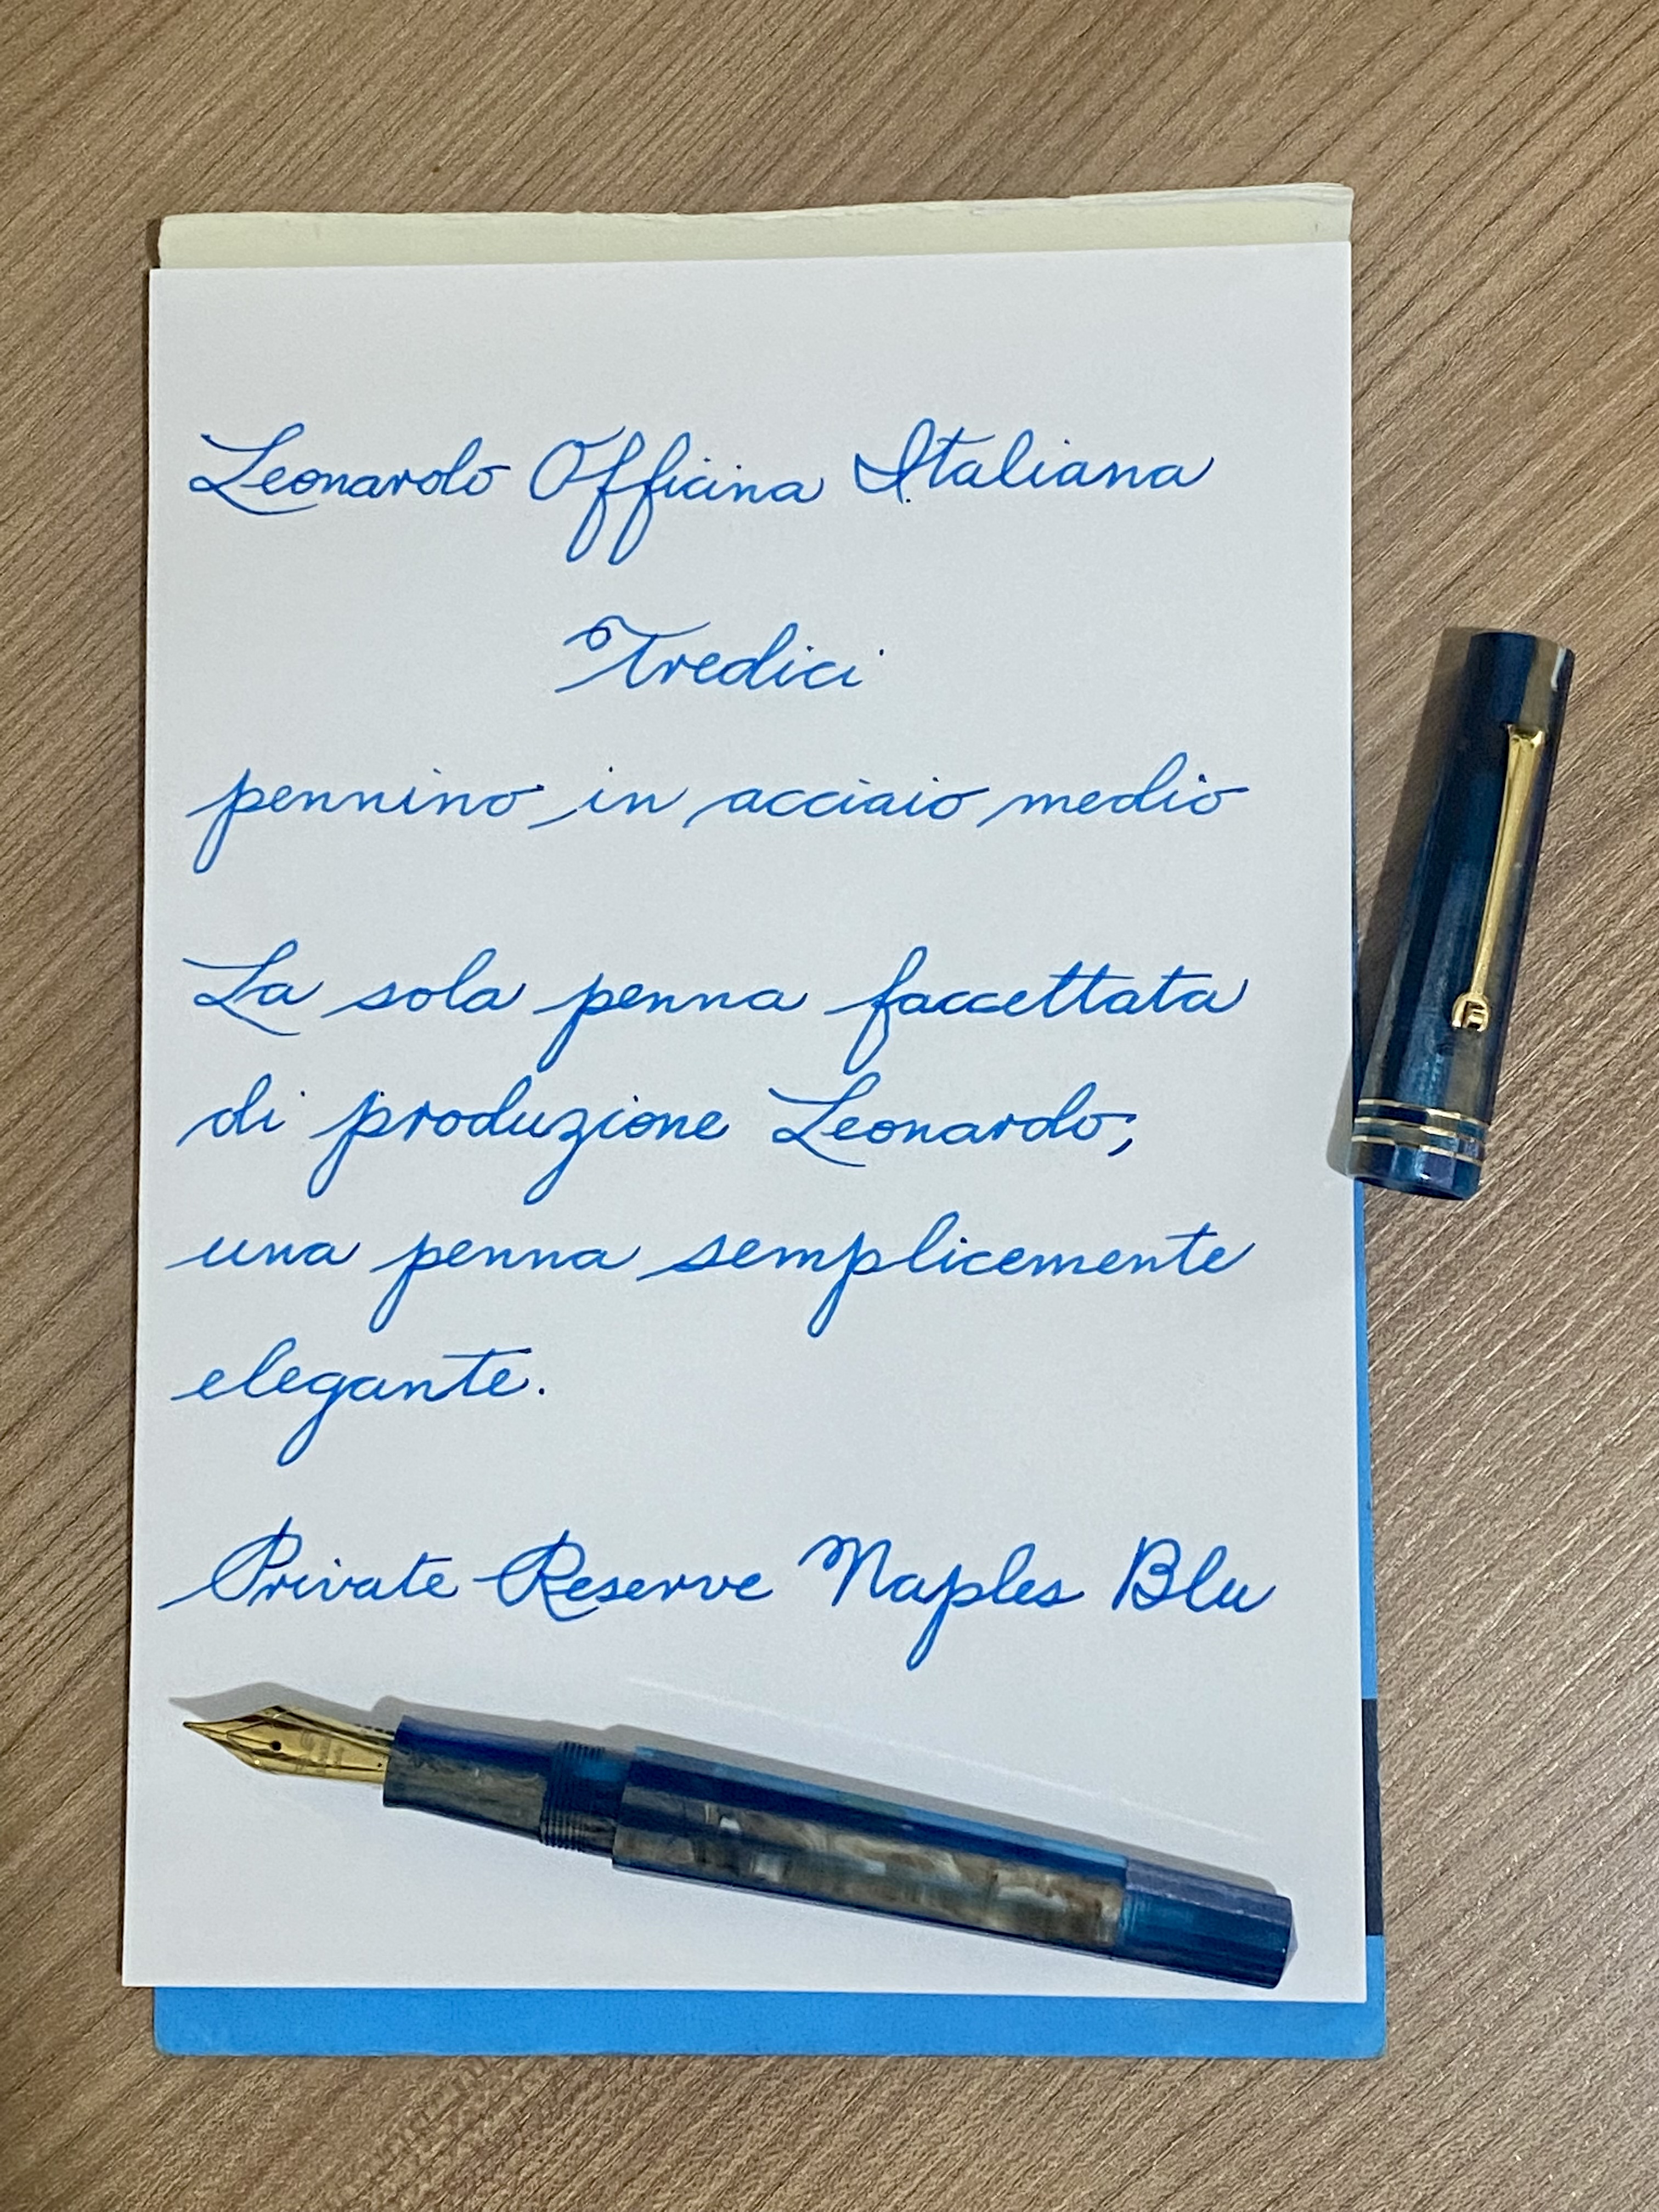 Leonardo Officina Italiana
Tredici
pennino in acciaio medio
La sola penna faccettata
di produzione Leonardo;
una penna semplicemente
elegante.
Private Reserve Naples Blu